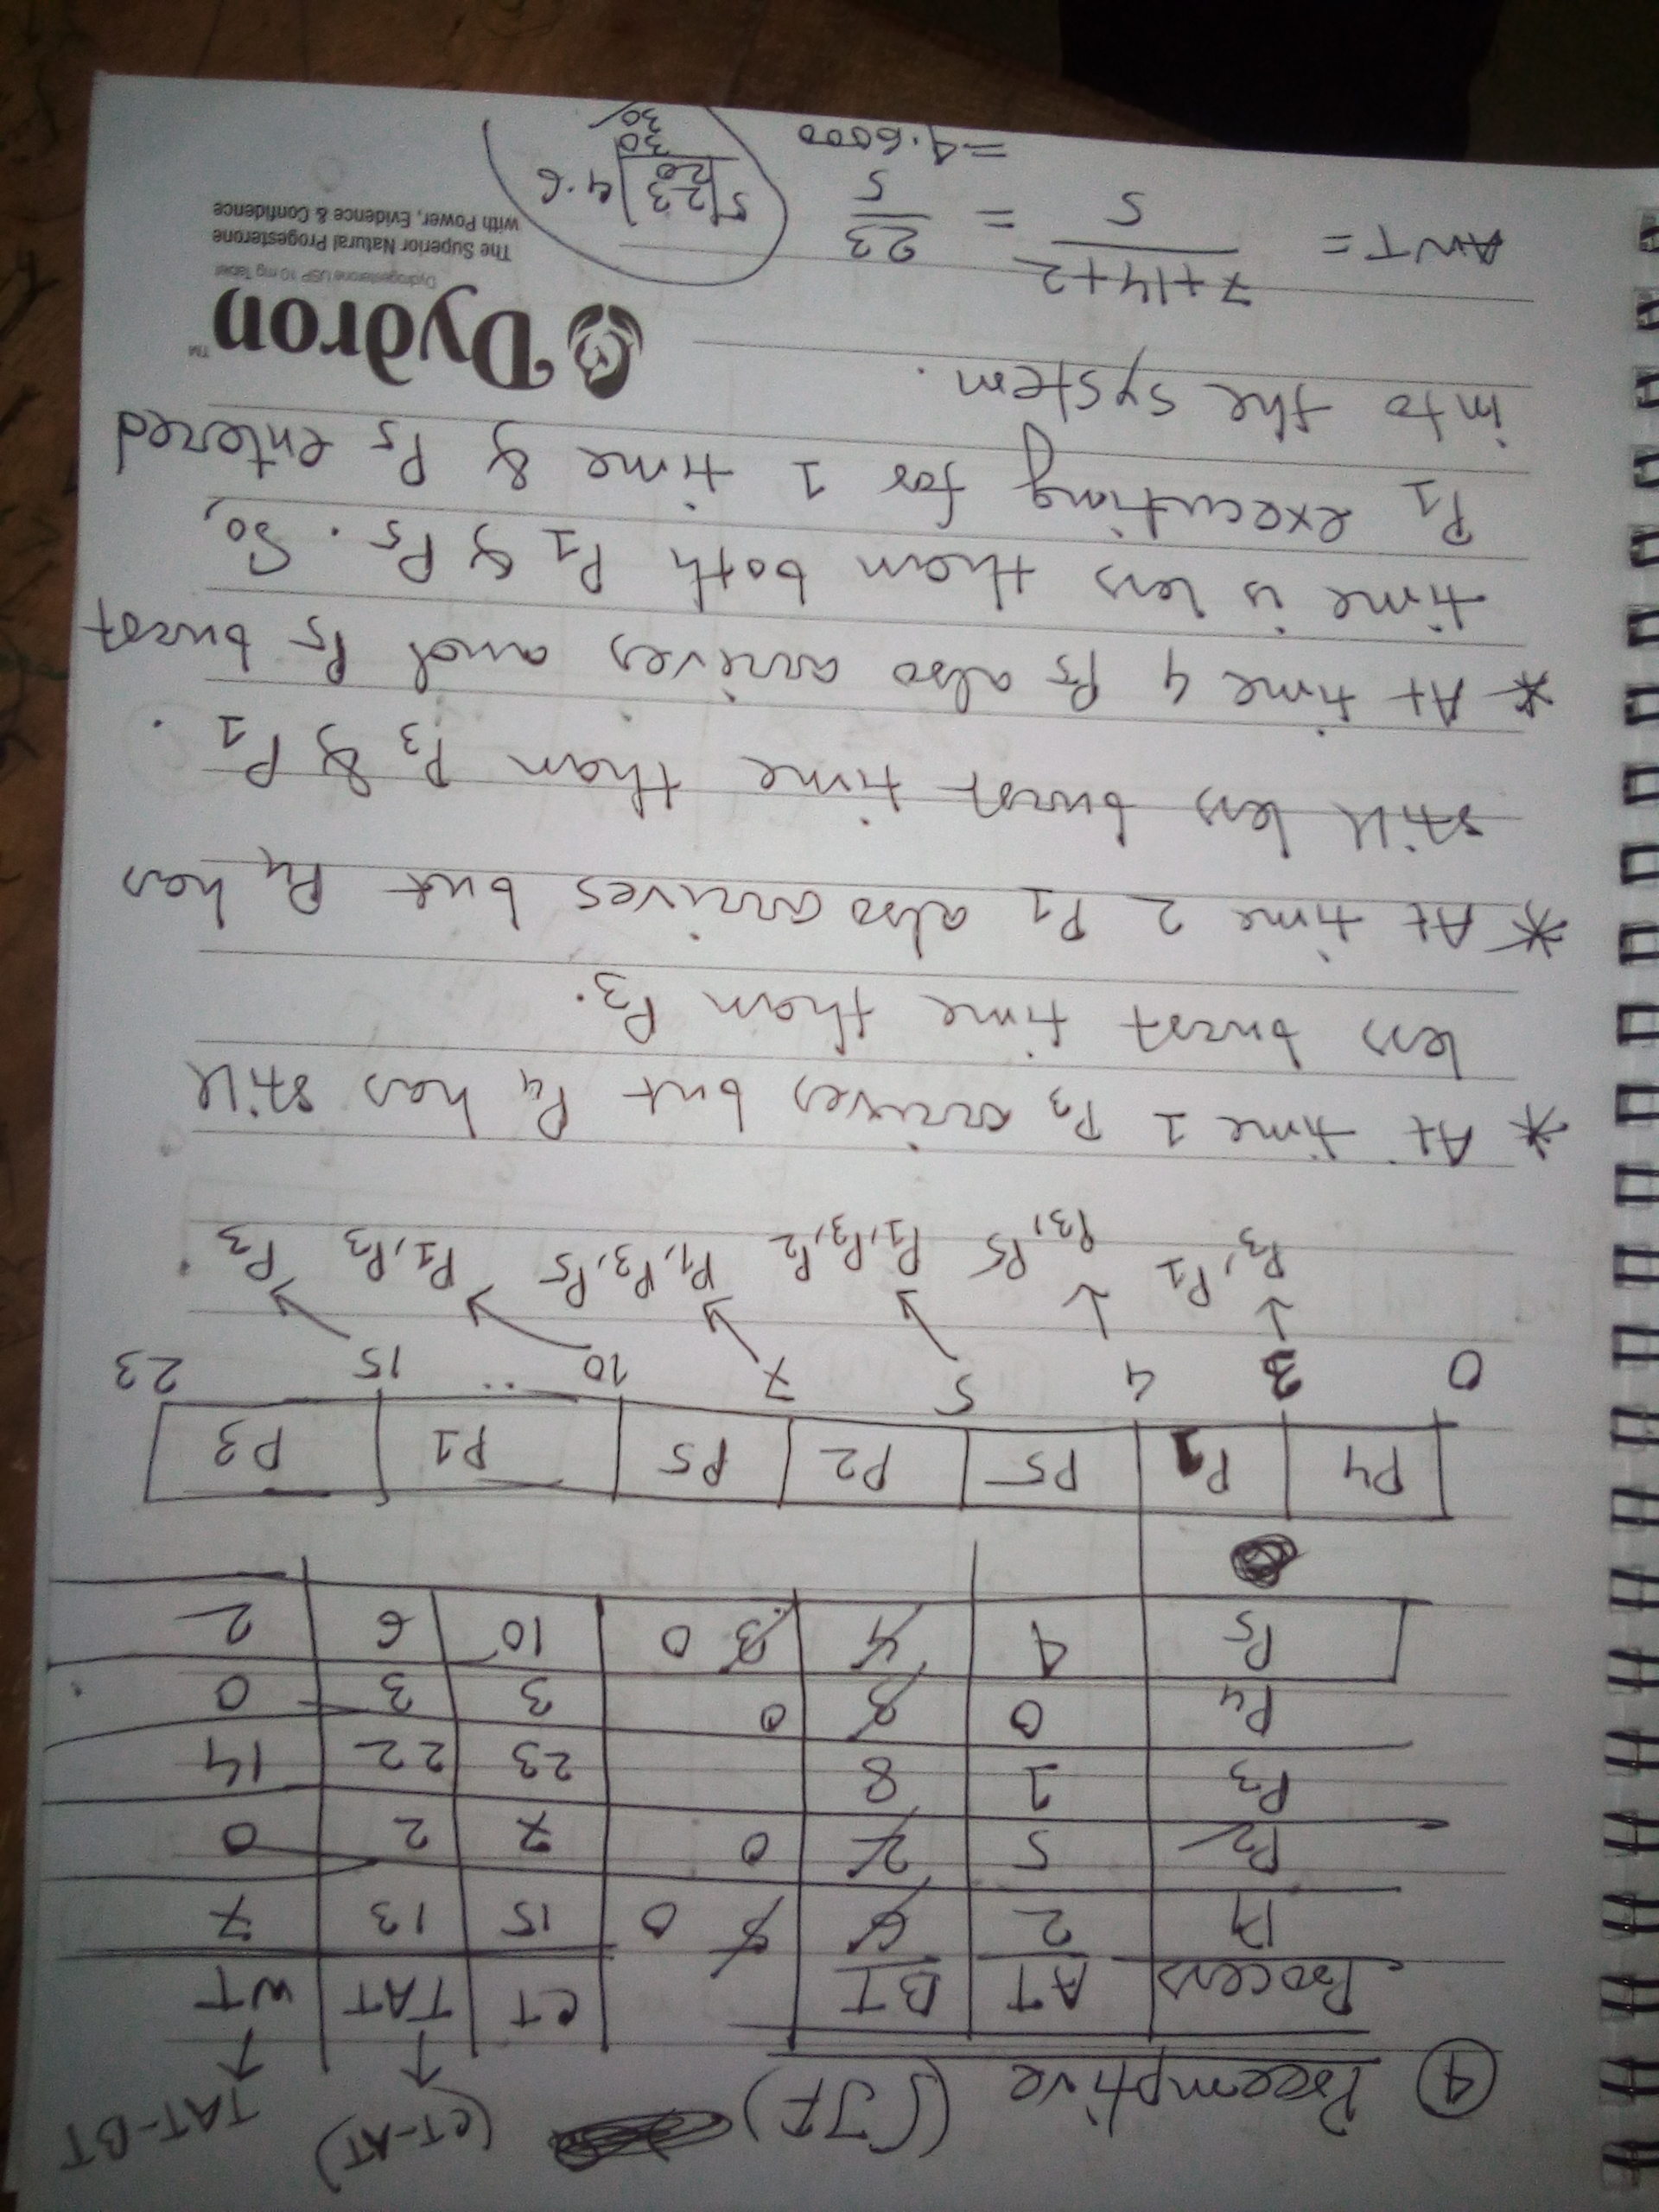 ④ Preemptive (SJF) (CT-AT) TAT-BT
Process AT BT CT TAT WT
P1 2 6 5 0 15 13 7
P2 5 2 0 7 2 0
P3 1 8 23 22 14
P4 0 3 0 3 3 0
P5 4 4 3 0 10 6 2
P4 P1 P5 P2 P5 P1 P3
0 3 4 5 7 10 15 23
P3, P1 P3, P5 P1, P3, P2 P1, P3, P5 P1, P3 P3
* At time 1 P3 arrives but P4 has still
less burst time than P3.
* At time 2 P1 also arrives but P4 has
still less burst time than P3 & P1.
* At time 4 P5 also arrives and P5 burst
time is less than both P1 & P5. So,
P1 executing for 1 time & P5 entered
into the system.
Dydron™
Dydrogesterone USP 10 mg Tablet
The Superior Natural Progesterone
with Power, Evidence & Confidence
AWT = 7+14+2 / 5 = 23 / 5
= 4.6000
5 23 4.6
20
30
30